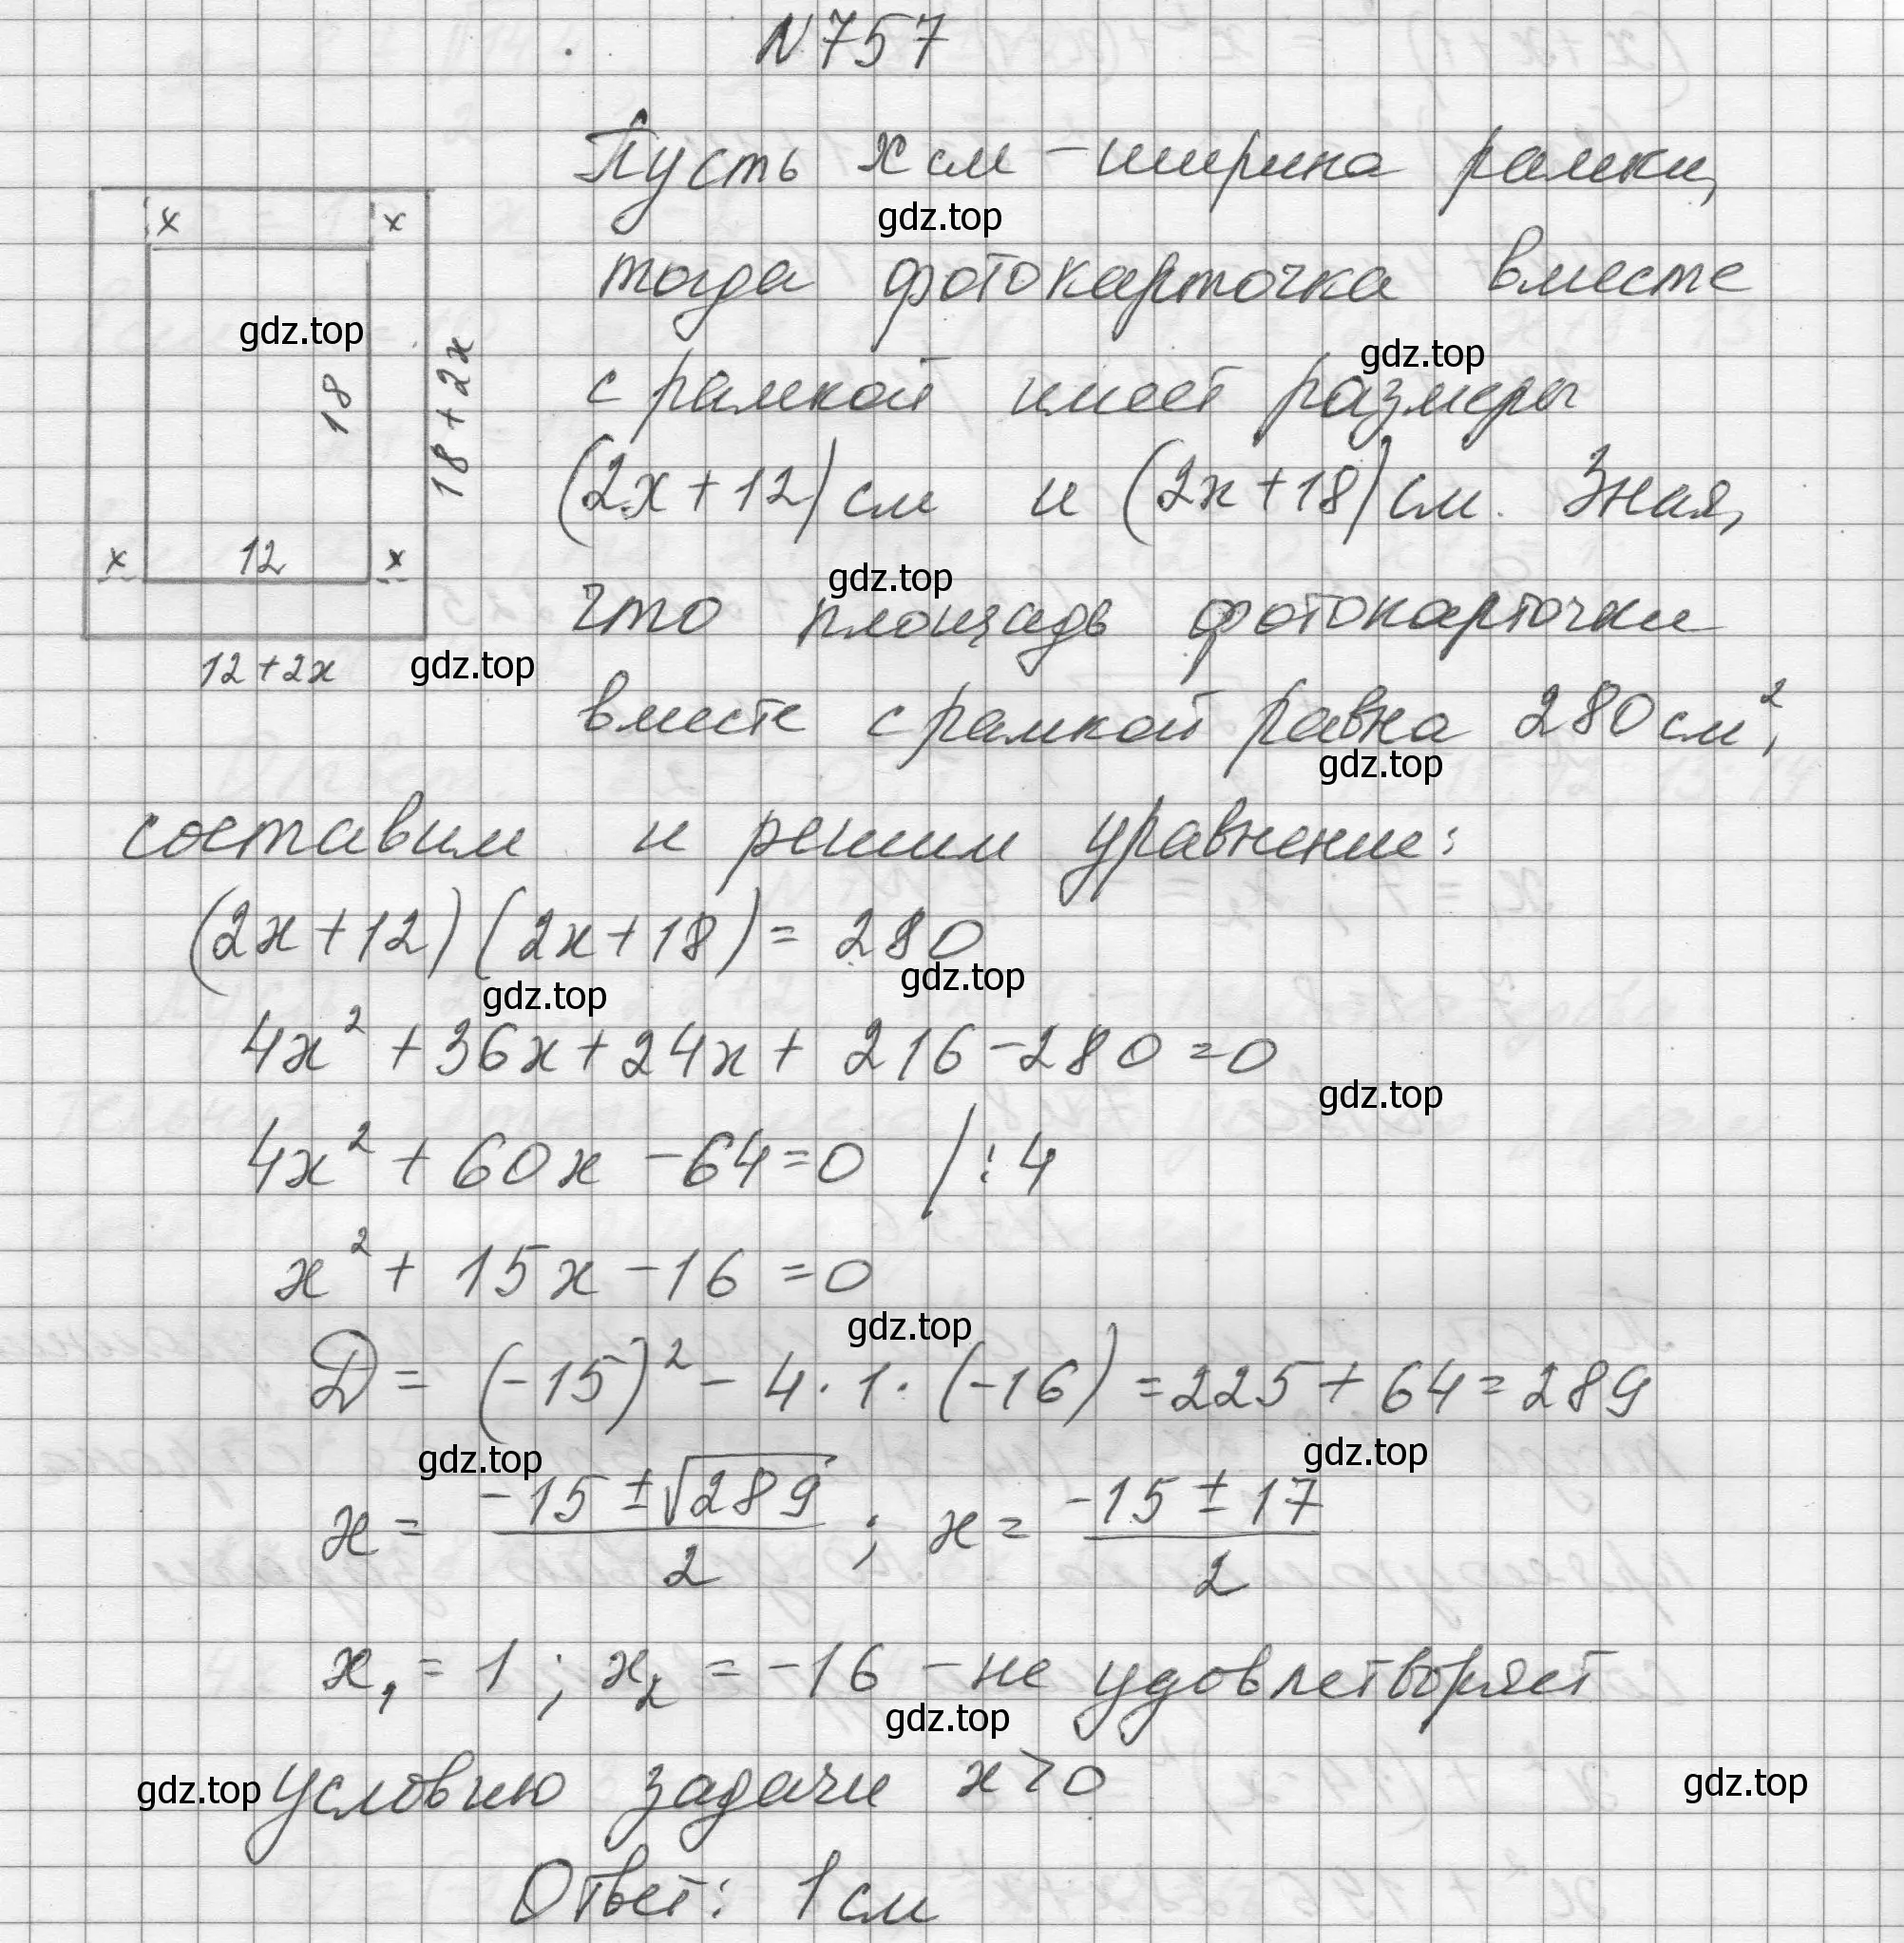 N757
Пусть x см - ширина рамки,
gdz.top
x x
тогда фотокарточка вместе
gdz.top
gdz.top
18
18+2x
с рамкой имеет размеры
(2x+12) см и (2x+18) см. Зная,
x 12 x
gdz.top
что площадь фотокарточки
12+2x
gdz.top
вместе с рамкой равна 280 см²,
gdz.top
составим и решим уравнение:
(2x+12)(2x+18)=280
gdz.top
gdz.top
4x² + 36x + 24x + 216 - 280 = 0
gdz.top
4x² + 60x - 64 = 0 / : 4
x² + 15x - 16 = 0
gdz.top
D = (-15)² - 4 · 1 · (-16) = 225 + 64 = 289
gdz.top
gdz.top
x = (-15 ± √289)/2 ; x = (-15 ± 17)/2
x₁ = 1 ; x₂ = -16 - не удовлетворяет
gdz.top
gdz.top
условию задачи x>0
gdz.top
Ответ: 1 см